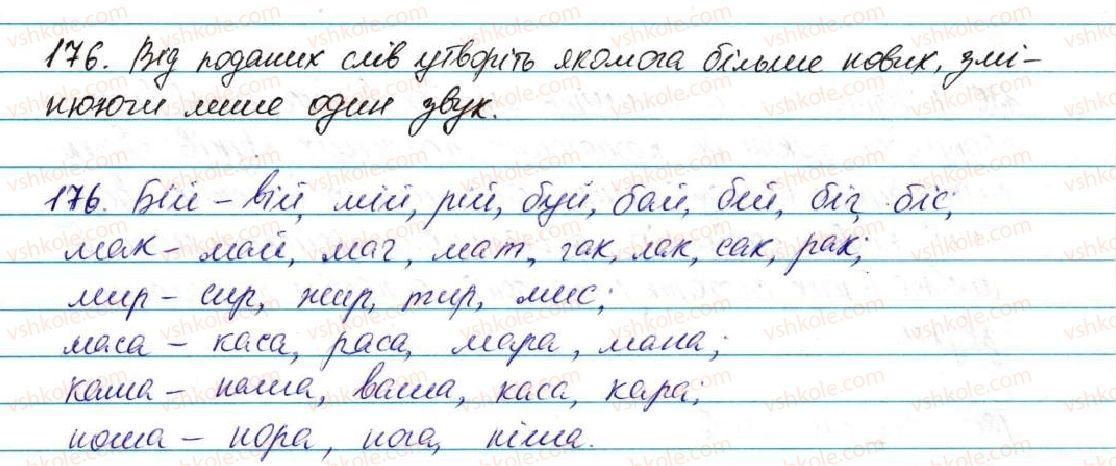 176. Від поданих слів утворіть якомога більше нових, змі-
нюючи лише один звук.
176. Бій – вій, мій, рій, буй, бай, бей, біг, біс;
мак – май, маг, мат, гак, лак, сак, рак;
мир – сир, жир, тир, мис;
маса – каса, раса, мара, мана;
каша – наша, ваша, каса, кара;
ноша – нора, нога, ніша.